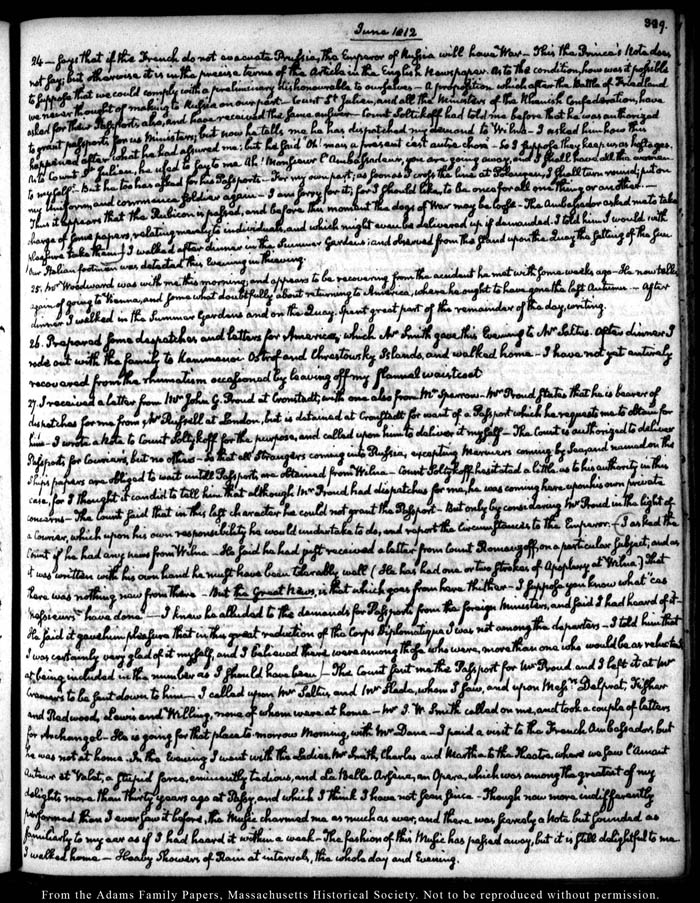 June 1812
329.
24— says that if the French do not evacuate Prussia, the Emperor of Russia will have War — This the Prince's Note does
not say; but otherwise it is in the precise terms of the Article in the English Newspaper. As to the condition, how was it possible
to suppose that we could comply with a preliminary dishonourable to ourselves — A proposition which after the Battle of Friedland
we never thought of making to Russia on our part — Count St Julien, and all the Ministers of the Rhenish Confederation, have
asked for their Passports also, and have received the same answer — Count Soltikoff had told me before that he was authorized
to grant passports for us Ministers; but now he tells me he has dispatched my demand to Wilna — I asked him how this
happened after what he had assured me; but he said Oh! mais à present c'est autre chose — So I suppose they keep us as hostages.
As to Count St Julien, he used to say to me Ah! Monsieur l'Ambassadeur, you are going away, and I shall have all the women
to myself: But he too has asked for his Passports — For my own part; as soon as I cross the line at Polangen, I shall turn round; put on
my Uniform, and commence soldier again — I am sorry for it; for I should like to be once for all one thing or another. —
Thus it appears that the Rubicon is passed, and before this moment the dogs of War may be loose — The Ambassador asked me to take
charge of some papers, relating merely to individuals, and which might even be delivered up if demanded. I told him I would with
pleasure take them} I walked after dinner in the Summer Gardens; and observed from the stand upon the Quay the setting of the Sun
Our Italian footman was detected this Evening in thieving.
25. Mr Woodward was with me this morning, and appears to be recovering from the accident he met with some weeks ago — He now talks
again of going to Vienna, and somewhat doubtfully about returning to America, where he ought to have gone the last Autumn — After
dinner I walked in the Summer Gardens and on the Quay. Spent great part of the remainder of the day, writing.
26. Prepared some dispatches and letters for America, which Mr Smith gave this Evening to Mr Saltus. After dinner I
rode out with the family to Kammenoi Ostrof and Chrestowsky Islands, and walked home — I have not yet entirely
recovered from the rheumatism occasioned by leaving off my flannel waistcoat
27. I received a letter from Mr John G. Proud at Cronstadt, with one also from Mr Sparrow — Mr Proud states that he is bearer of
dispatches for me from Mr Russell at London, but is detained at Cronstadt for want of a Passport which he requests me to obtain for
him — I wrote a Note to Count Soltykoff for the purpose, and called upon him to deliver it myself — The Count is authorized to deliver
Passports for Couriers, but no others — So that all strangers coming into Russia, excepting Mariners coming by Sea, and named in the
Ships papers are obliged to wait untill Passports are obtained from Wilna — Count Soltykoff hesitated a little as to his authority in this
case, for I thought it candid to tell him that although Mr Proud had dispatches for me, he was coming here upon his own private
concerns — The Count said that in this last character he could not grant the Passport — But only by considering Mr Proud in the light of
a Courier, which upon his own responsibility he would undertake to do, and report the Circumstances to the Emperor. [I asked the
Count if he had any news from Wilna — He said he had just received a letter from Count Romanzoff, on a particular Subject, and as
it was written with his own hand he must have been tolerably well (He has had one or two strokes of Apoplexy at Wilna.) That
there was nothing new from there — But the Great News, is that which goes from here thither — I suppose you know what "ces
Messieurs" have done. — I knew he alluded to the demands for Passports from the foreign Ministers, and said I had heard of it —
He said it gave him pleasure that in this great reduction of the Corps Diplomatique I was not among the departers — I told him that
I was certainly very glad of it myself, and I believed there were among those who were, more than one who would be as reluctant
at being included in the number as I should have been] — The Count sent me the Passport for Mr Proud and I left it at Mr
Cramers to be sent down to him — I called upon Mr Saltus, and Mr Slade, whom I saw, and upon Messrs Delprat, Fisher
and Redwood, Lewis and Willing, none of whom were at home — Mr I. W. Smith called on me, and took a couple of letters
for Archangel — He is going for that place to-morrow Morning, with Mr Dana — I paid a visit to the French Ambassador, but
he was not at home. In the Evening I went with the Ladies, Mr Smith, Charles and Martha to the Theatre, where we saw l'Amant
Auteur et Valet, a stupid farce, eminently tedious, and La Belle Arsène, an Opera, which was among the greatest of my
delights more than thirty years ago at Passy, and which I think I have not seen since — Though now more indifferently
performed than I ever saw it before, the Music charmed me as much as ever, and there was scarcely a Note but sounded as
familiarly to my ear as if I had heard it within a week — The fashion of this Music has passed away, but it is still delightful to me
I walked home — Heavy Showers of Rain at intervals, the whole day and Evening.
From the Adams Family Papers, Massachusetts Historical Society. Not to be reproduced without permission.